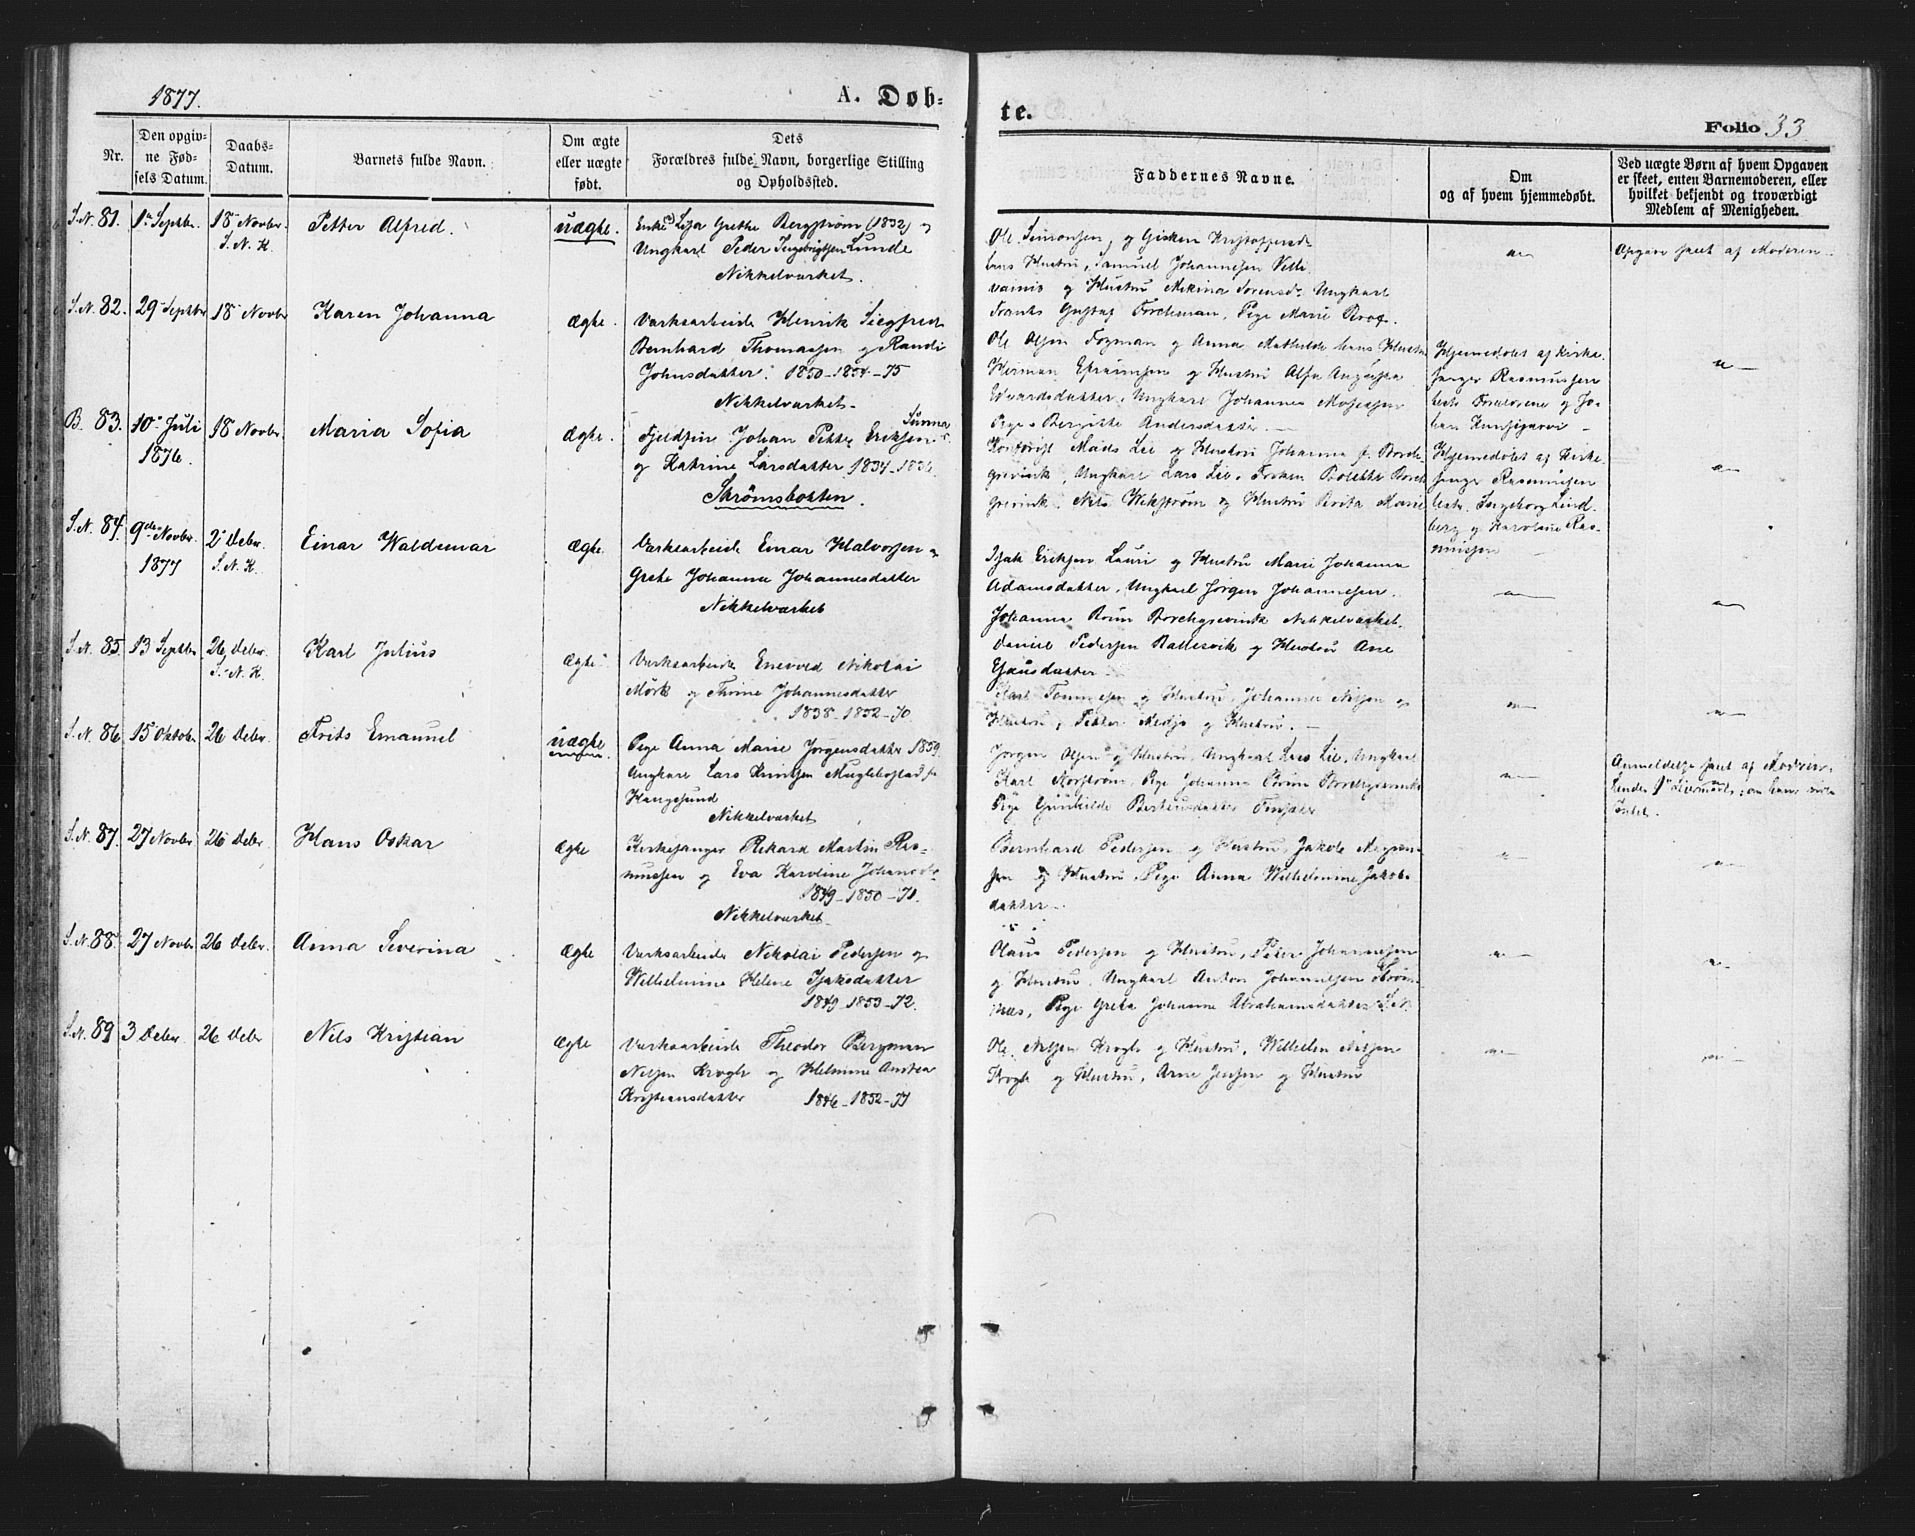 1877.
A. Døb-
te.
Folio 33
Nr.
Den opgiv-
ne Fød-
sels Datum.
Daabs-
Datum.
Barnets fulde Navn.
Om ægte
eller uægte
født.
Dets
Forældres fulde Navn, borgerlige Stilling
og Opholdssted.
Faddernes Navne.
Om
og af hvem hjemmedøbt.
Ved uægte Børn af hvem Opgaven
er skeet, enten Barnemoderen, eller
hvilket bekjendt og troværdigt
Medlem af Menigheden.
S.N. 81. 1ste Septbr. 18 Novbr.
S.N.K.
Petter Alfred.
uægte.
Enke Lisa Grethe Bergstrøm (1832) og
Ungkarl Peder Ingebrigtsen Lunde
Nikkelværket.
Ole Simonsen, og Gisken Kristoffersd.
hans Hustru, Samuel Johannesen
og Hustru Mekina Sorensd. Ungkarl
Frants Gustaf Forchman, Pige Marie
Opgave skeet af Moderen.
S.N. 82. 29 Septbr 18 Novbr
Karen Johanna
Ægte.
Værksarbeide Henrik Siegfred
Bernhard Thomassen og Randi
Johnsdatter. 1850-1854-75
Nikkelværket
Ole Olsen Fozman og Anna Mathilde hans Hustru
Herman Efraimsen og Hustru Alfa Augusta
Edvardsdatter, Ungkarl Johannes Mosessen
Pige Bergitte Andersdatter.
Hjemmedøbt af Kirke-
sanger Rasmussen
Forældrene og Jo-
han
B. 83. 10de Juli
1876.
18 Novbr.
Maria Sofia
Ægte.
Fjeldfin Johan Petter Eriksen Sunna
og Katrine Larsdatter 1834-1836
Strømsbotten.
Mads Lie og Hustru Johanna f. Borch-
grevink, Ungkarl Lars Lie, Frøken Bolette Borch
grevink, Nils Wikstrøm og Hustru Berita Marie
Hjemmedøbt af Kirke-
sanger Rasmussen
Ingeborg Lind-
berg og Karoline Ras-
mussen
S.N. 84. 9de Novbr.
1877
2 Debr.
S.N.K.
Einar Waldemar
Ægte.
Værksarbeide Einar Halvorsen og
Grete Johanna Johannesdatter
Nikkelværket
Isak Eriksen Lauri og Hustru Marie Johanna
Adamsdatter, Ungkarl Jørgen Johannesen.
Johanna Brun Borchgrevink Nikkelværket.
S.N. 85. 13 Septbr 26 Debr.
S.N.K.
Karl Julius
Ægte
Værksarbeide Enevod Nikolai
Mørk og Thrine Johannesdatter
1838-1852-70.
Daniel Pedersen Ballesvik og Hustru Ane
Karl Tommesen og Hustru, Johannes Nilsen og
Hustru, Petter Medjo og Hustru.
S.N. 86. 15 Oktober 26 Debr.
Frits Emanuel
uægte
Pige Anna Marie Jørgensdatter 1859.
Ungkarl Lars Knutsen Muglebostad fra
Kaugesund
Nikkelværket
Jørgen Olsen og Hustru, Ungkarl Lars Lie, Ungkarl
Karl Norstrøm, Pige Johanna Brun Borchgrevink
Pige Gunhilde Bertheusdatter
Anmeldelse skeet af Moderen.
S.N. 87. 27 Novbr. 26 Debr.
Hans Oskar
Ægte
Kirkesanger Rikard Martin Ras-
mussen og Eva Karoline Johansdtr
1849-1850-71.
Nikkelværket
Bernhard Pedersen og Hustru, Jakob
og Hustru, Pige Anna Wilhelmine Jakobs
datter.
S.N. 88. 27 Novbr 26 Debr.
Anna Severina
Ægte
Værksarbeide Nikolai Pedersen og
Wilhelmine Helene Isaksdatter
1849-1853-72.
Olaus Pedersen og Hustru, Peter Johannesen
og Hustru, Ungkarl Anton Johannesen Strøm-
næs, Pige Greta Johanna Abrahamsdatter S.N.
S.N. 89. 3 Debr. 26 Debr
Nils Kristian
Ægte
Værksarbeide Theodor Bergman
Nilsen Krogh og Helmine Andrea
Kristiansdatter 1846-1852-77
Ole Nilsen Krogh og Hustru, Wilhelm Nilsen
Krogh og Hustru, Arne Jensen og Hustru